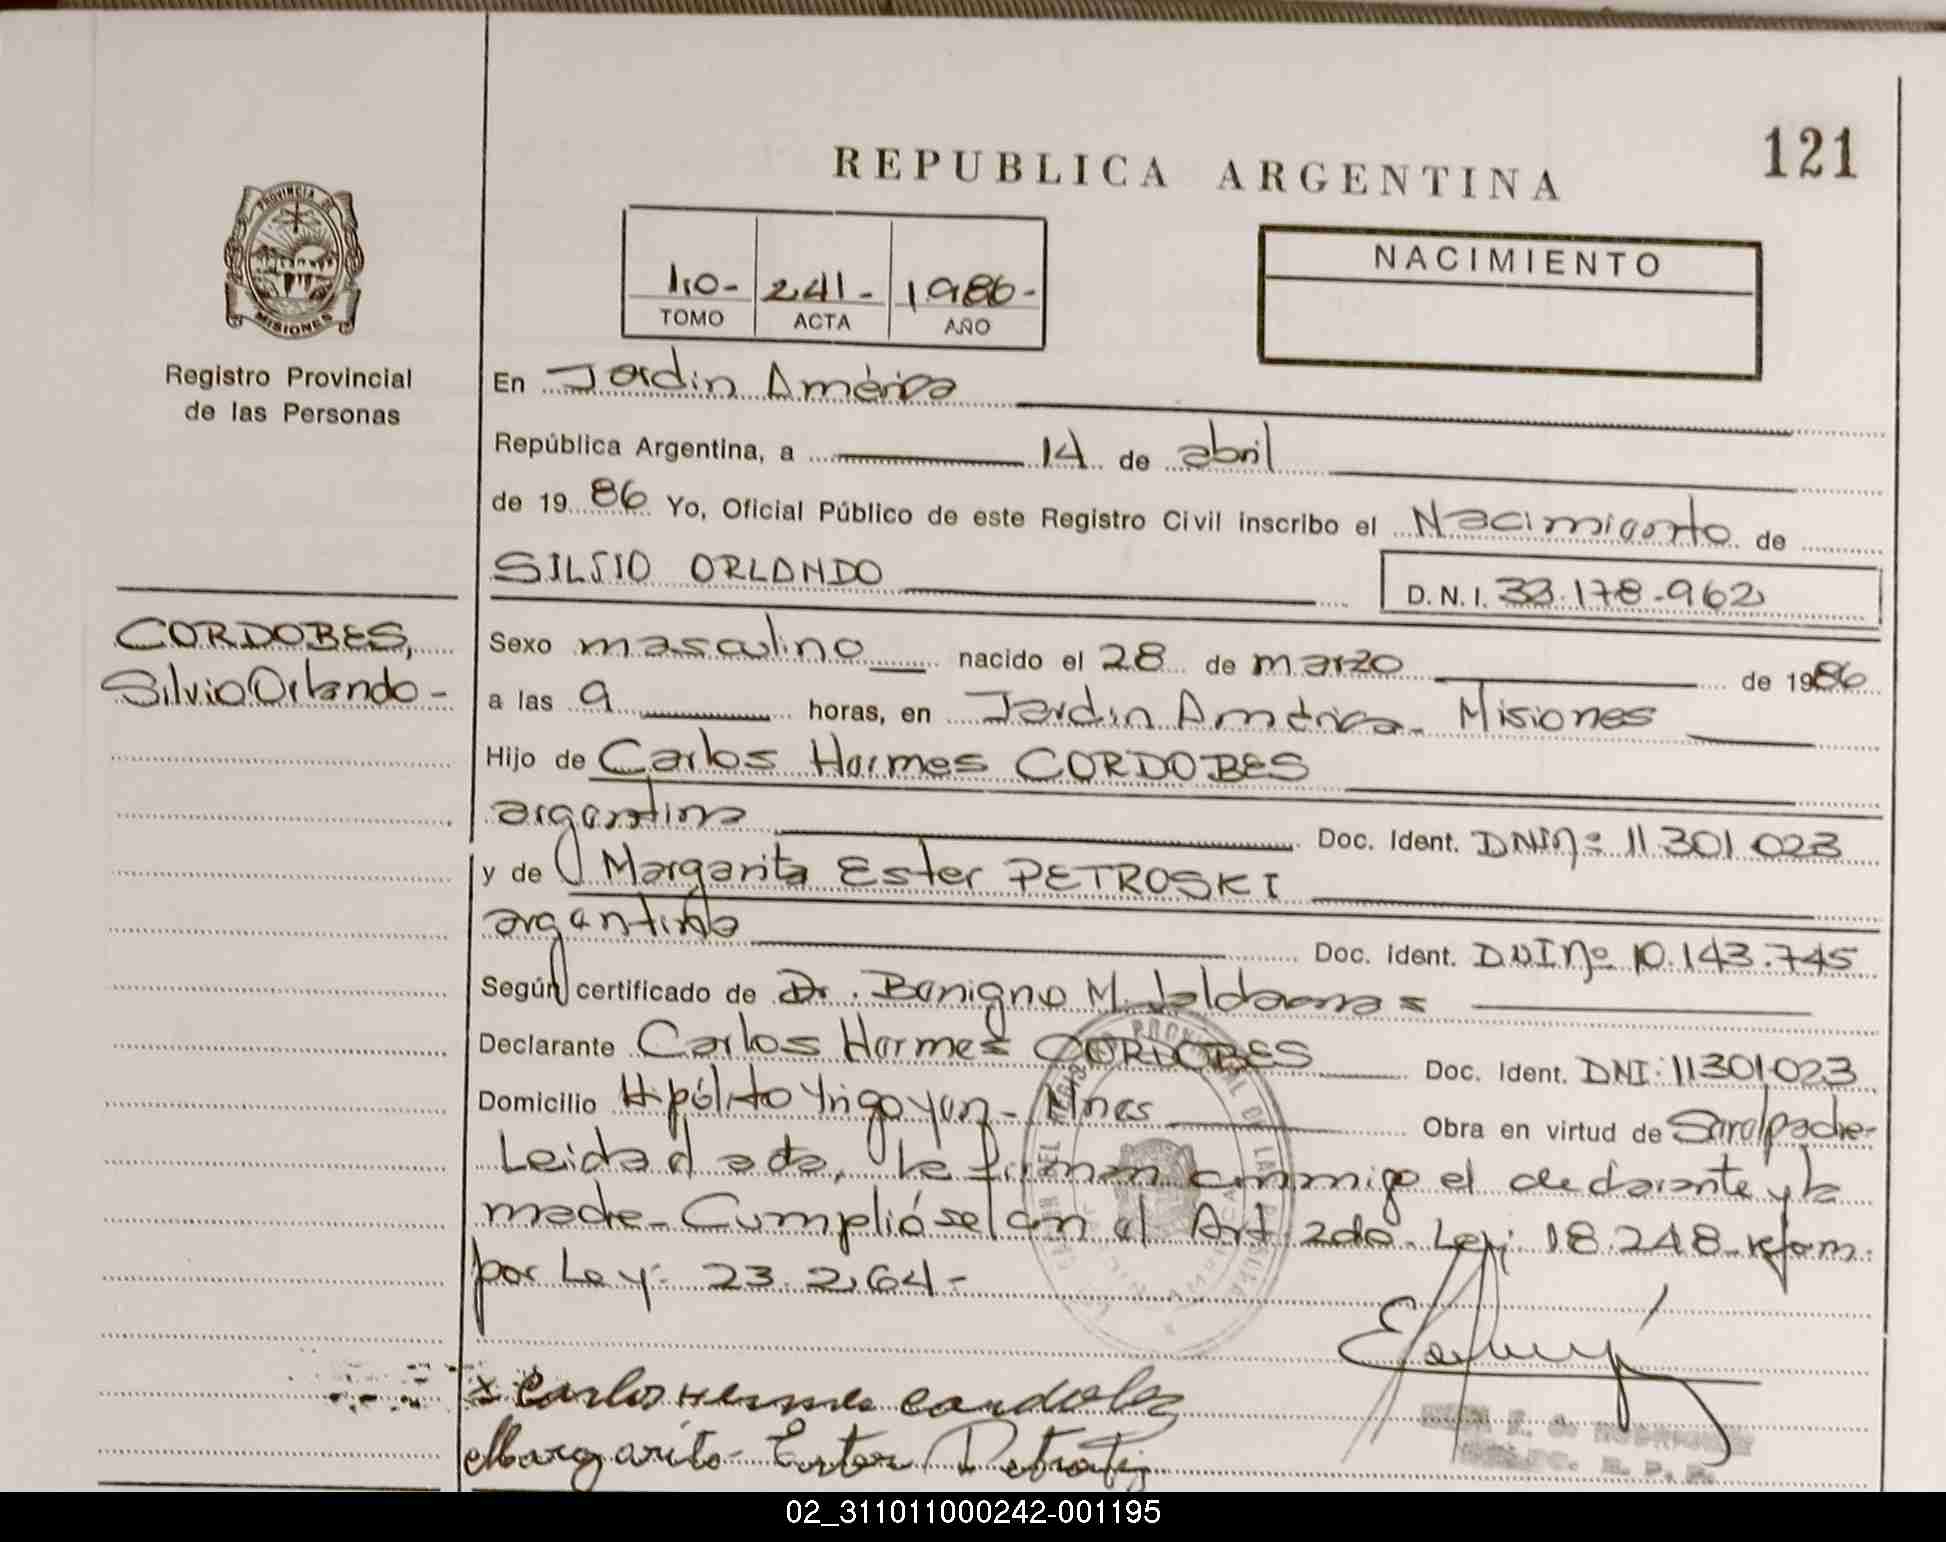 121
REPUBLICA ARGENTINA
PROVINCIA DE
MISIONES
Registro Provincial
de las Personas
1,0- 241- 1986-
TOMO ACTA AÑO
NACIMIENTO
En Jardin América
República Argentina, a 14 de abril
de 19 86 Yo, Oficial Público de este Registro Civil inscribo el Nacimiento de
SILVIO ORLANDO D.N.I. 33.178.962
CORDOBES,
Silvio Orlando-
Sexo masculino nacido el 28 de marzo de 1986
a las 9 horas, en Jardin América- Misiones
Hijo de Carlos Hermes CORDOBES
argentino Doc. Ident. DNInº: 11301023
y de Margarita Ester PETROSKI
argentina Doc. Ident. DNInº 10.143.745
Según certificado de Dr. Benigno M.
Declarante Carlos Hermes CORDOBES Doc. Ident. DNI: 11301023
Domicilio Hipólito Yrigoyen- Mnes Obra en virtud de Ser el padre-
Leida el acta, la firman conmigo el declarante y la
madre- Cumplióse con el Art. 2do- Ley: 18.248- refom.
por Ley: 23.264-
x Carlos Hermes
Margarita Ester
02_311011000242-001195